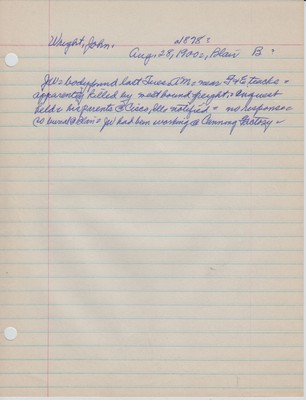 Wright, John, 1878?
Aug. 28, 1900, Blair B
JW's body found last Tues AM near tracks
apparently killed by west bound freight. Inquest
held. His parents @ Cisco, Ills notified no response
so buried @ Blair JW had been working @ Canning Factory